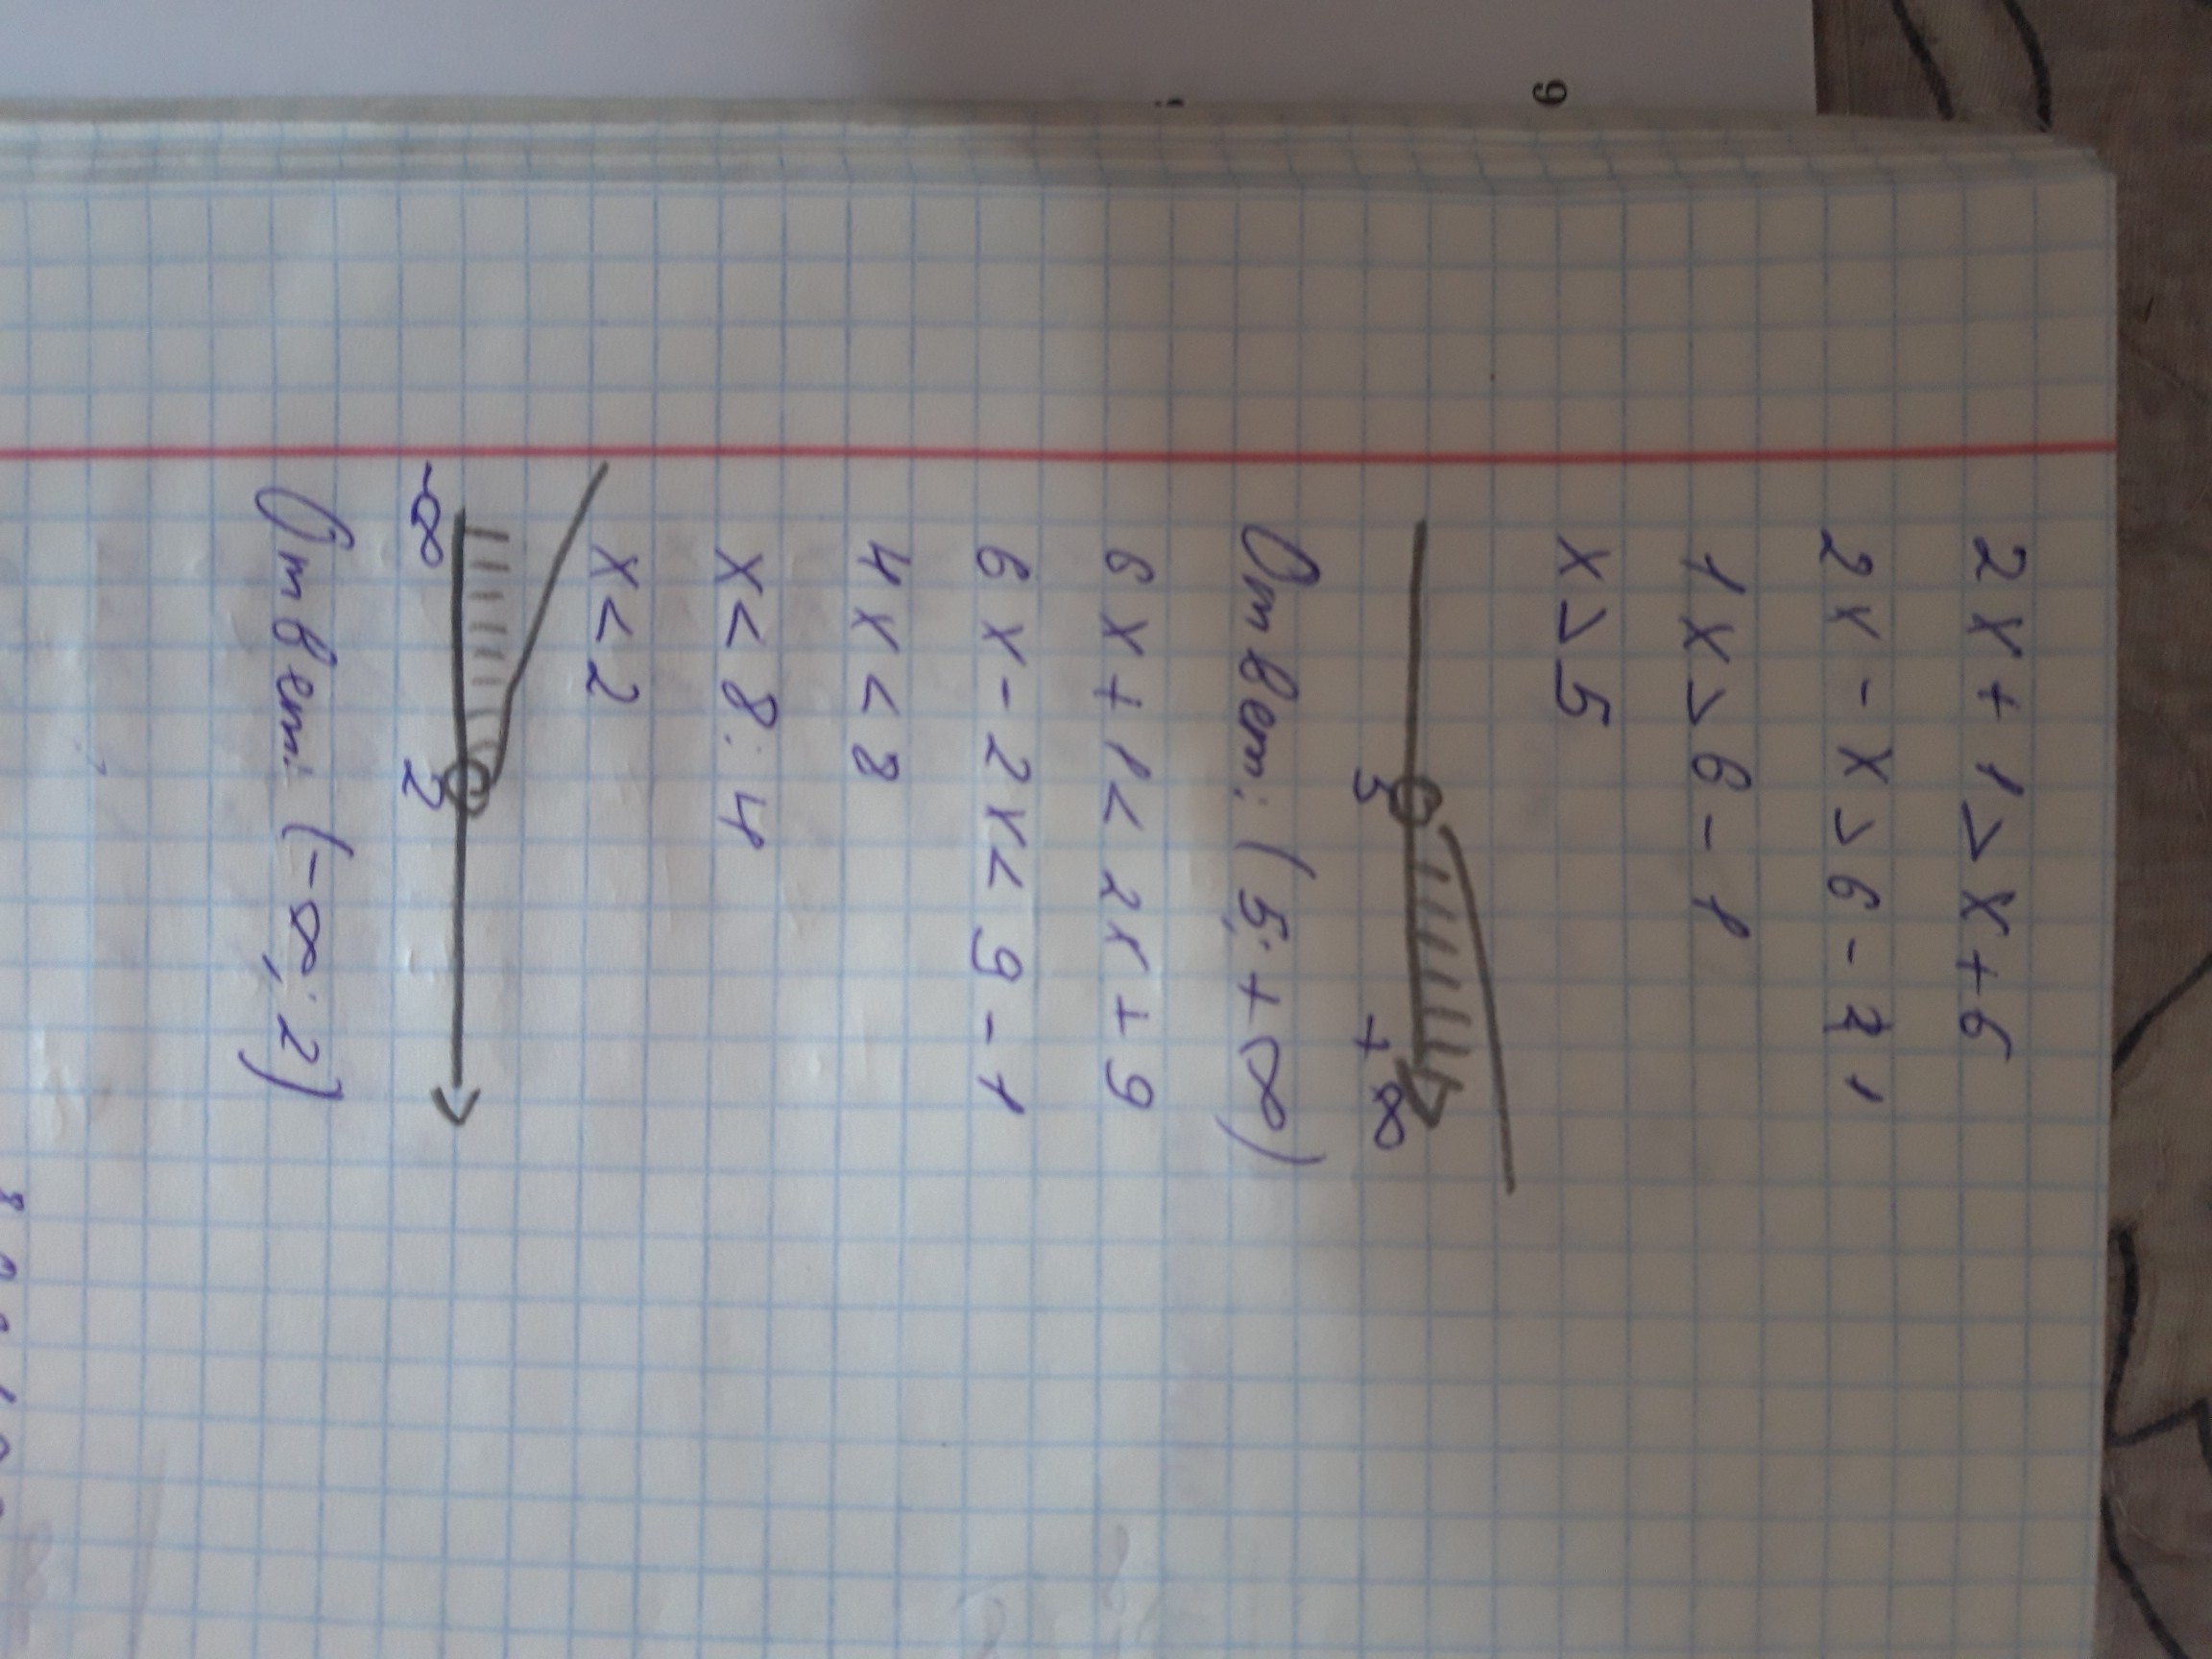 2x + 1 > x + 6
2x - x > 6 - 1
1x > 6 - 1
x > 5
5 +∞
Ответ: (5; +∞)
6x + 1 < 2x + 9
6x - 2x < 9 - 1
4x < 8
x < 8 : 4
x < 2
-∞ 2
Ответ: (-∞; 2)
9